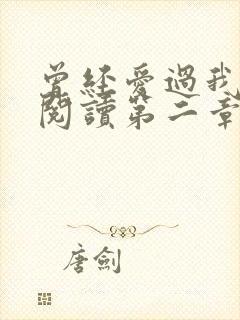 曾經愛過我
閱讀第二章
唐劍